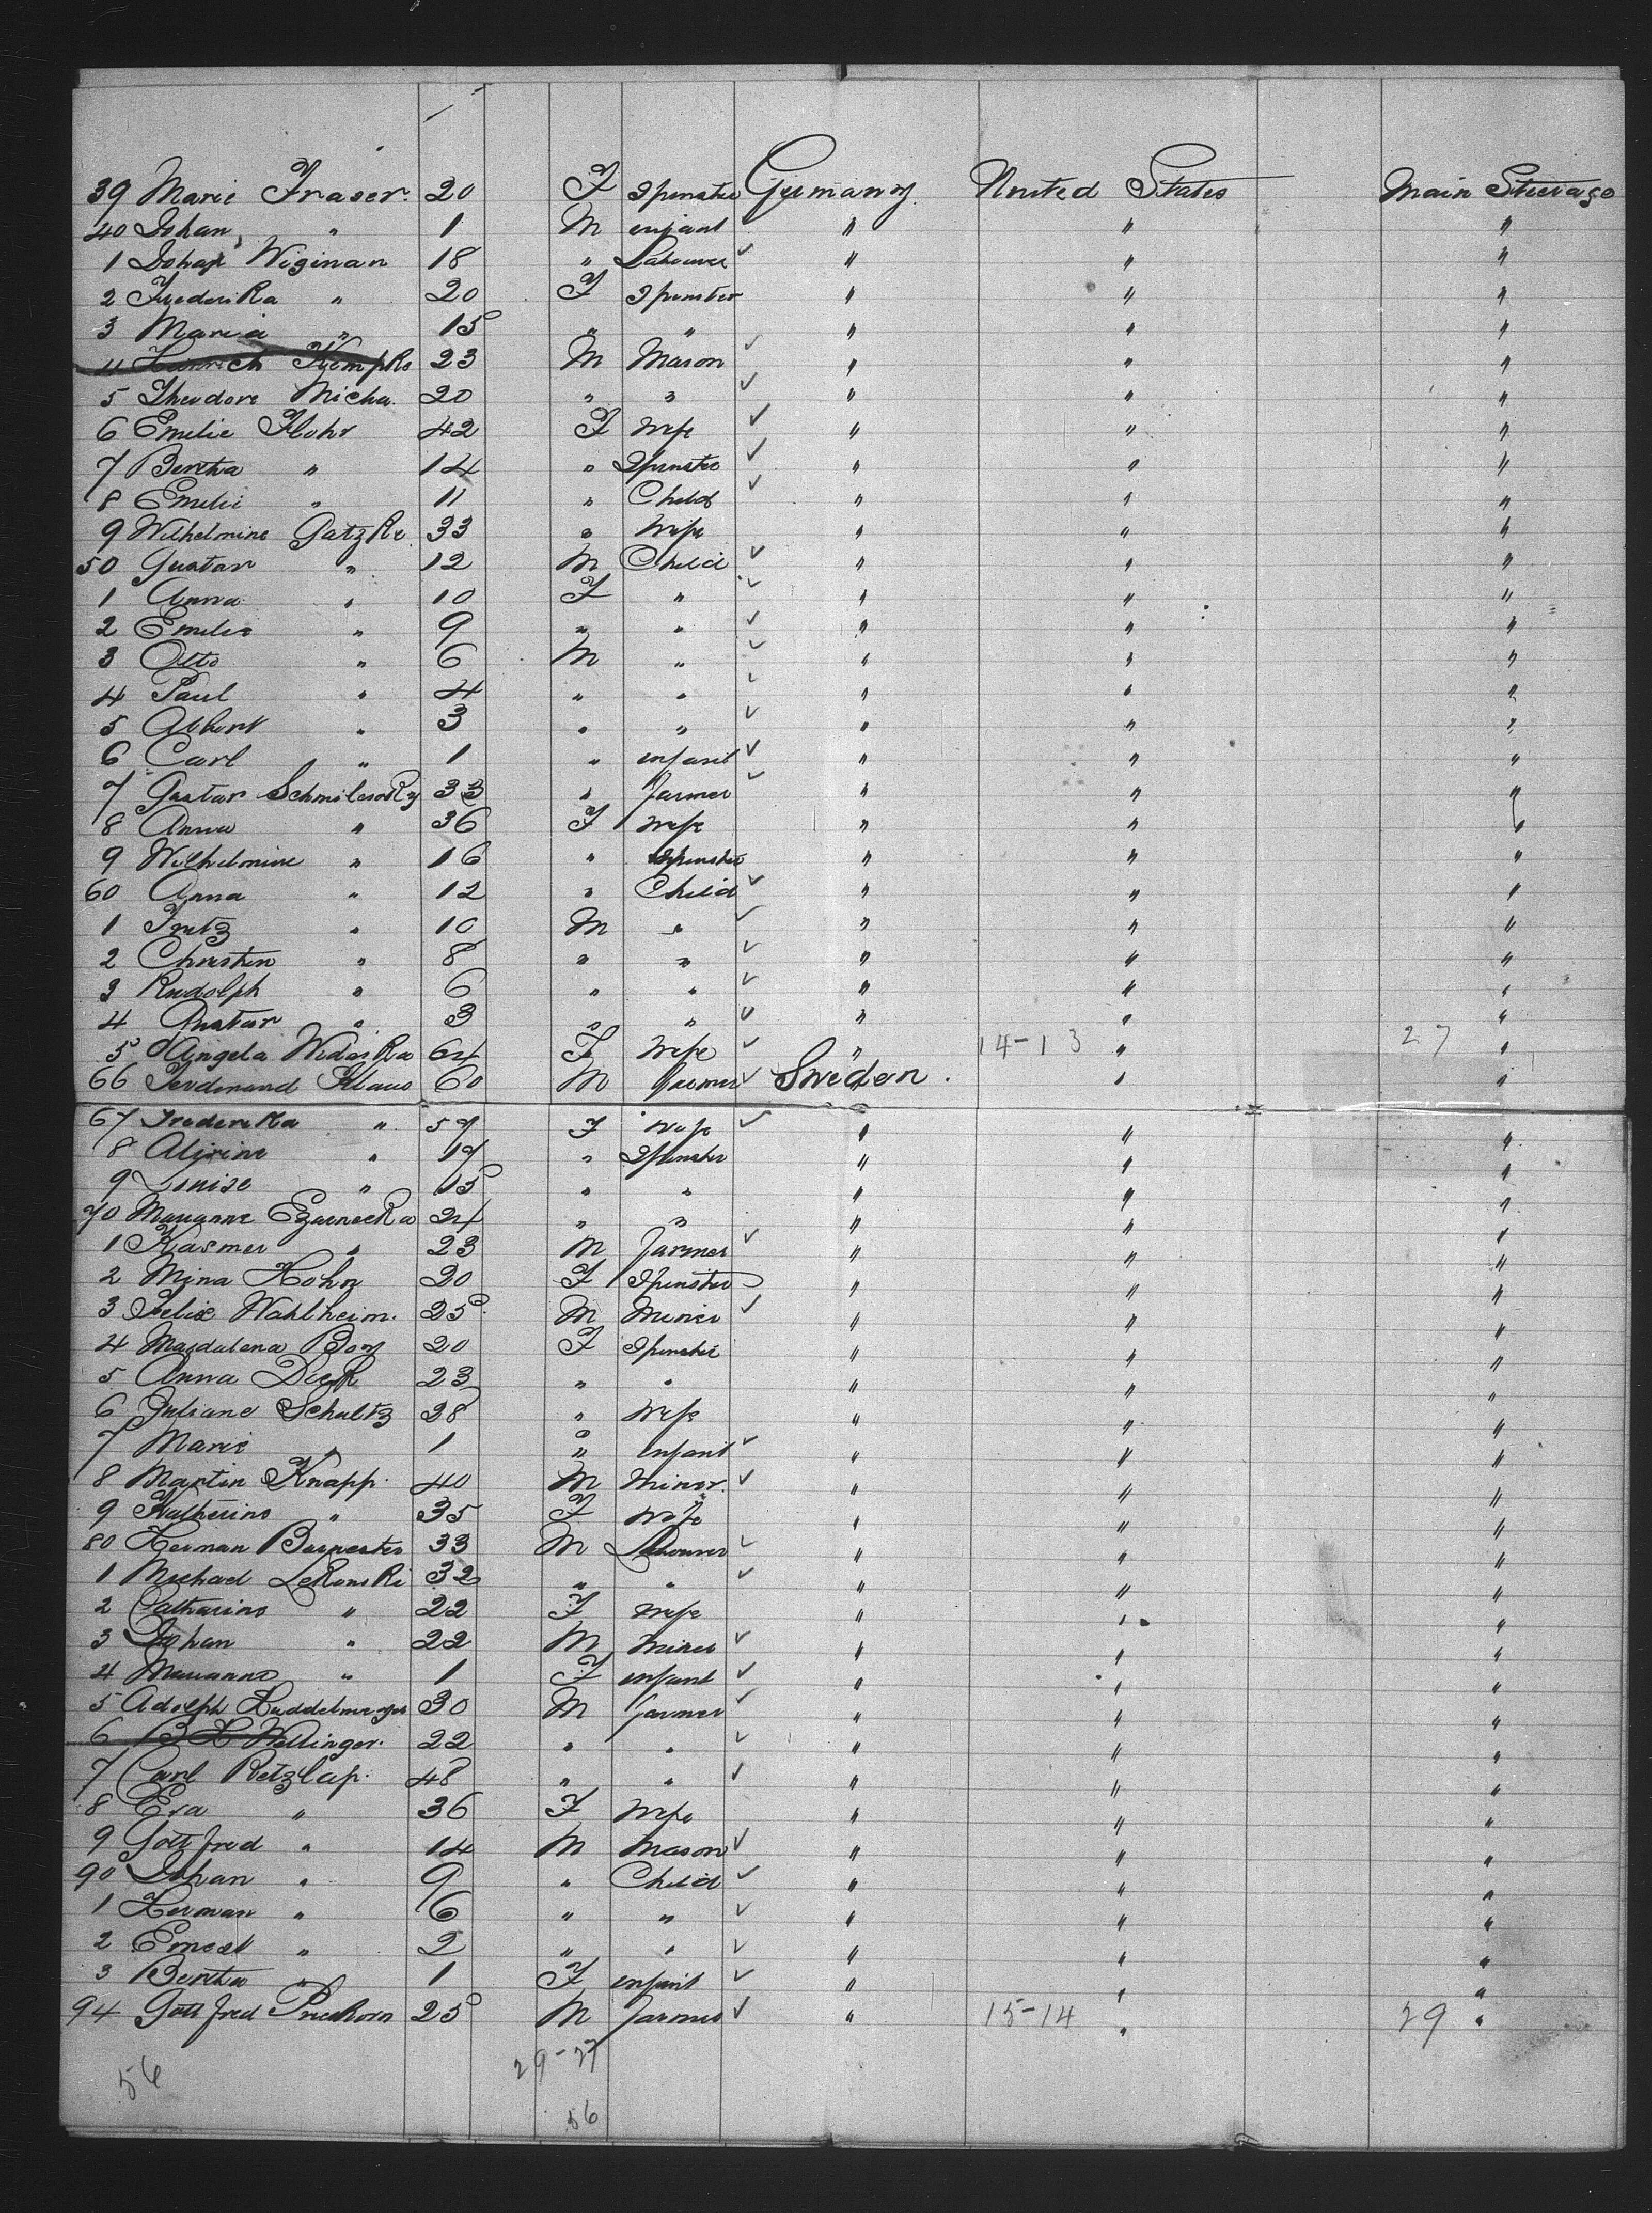 39 Marie Fraser. 20 F Spinster Germany. United States Main Steerage
40 Johan " 1 M infant " " "
1 Johan Wiginan 18 " Labourer ✓ " " "
2 Frederika " 20 F Spinster " " "
3 Maria " 15 " " " " "
4 Heinrich Kempks 23 M Mason ✓ " " "
5 Theodore Micha. 20 " " ✓ " " "
6 Emilie Flohr 42 F Wife ✓ " " "
7 Bertha " 14 " Spinster ✓ " " "
8 Emilie " 11 " Child ✓ " " "
9 Wilhelmine Gatzke 33 " Wife " " "
50 Gustav " 12 M Child ✓ " " "
1 Anna " 10 F " ✓ " " "
2 Emilie " 9 " " ✓ " " "
3 Otto " 6 M " ✓ " " "
4 Paul " 4 " " ✓ " " "
5 Albert " 3 " " ✓ " " "
6 Carl " 1 " infant ✓ " " "
7 Gustav Schmilewsky 33 " farmer ✓ " " "
8 Anna " 36 F Wife " " "
9 Wilhelmine " 16 " Spinster " " "
60 Anna " 12 " Child ✓ " " "
1 Fritz " 10 M " ✓ " " "
2 Christin " 8 " " ✓ " " "
3 Rudolph " 6 " " ✓ " " "
4 Gustav " 3 " " ✓ " " "
5 Angela Widaska 64 F Wife ✓ " 14-13 " 27 "
66 Ferdinand Klaus 60 M farmer ✓ Sweden. " "
67 Frederika " 57 F Wife ✓ " " "
8 " 17 " Spinster " " "
9 Louise " 15 " " " " "
70 Marianne Czarnecka 24 " " " " "
1 Kasmer " 23 M farmer ✓ " " "
2 Mina Hohn 20 F Spinster " " "
3 Felix Wahlheim. 25 M Miner ✓ " " "
4 Magdalena Boy 20 F Spinster " " "
5 Anna Dick 23 " " " " "
6 Juliane Schultz 28 " Wife " " "
7 Marie " 1 " Infant ✓ " " "
8 Martin Knapp. 40 M Minor. ✓ " " "
9 Katherine " 35 F Wife " " "
80 Herman Burmester 33 M Labourer ✓ " " "
1 Michael Lekowski 32 " " ✓ " " "
2 Catharine " 22 F Wife " " "
3 Johan " 22 M Miner ✓ " " "
4 Marianne " 1 F infant ✓ " " "
5 Adolph Huddelmeyer 30 M farmer ✓ " " "
6 B H Wellinger. 22 " " ✓ " " "
7 Carl Retzlap. 48 " " ✓ " " "
8 Eva " 36 F Wife " " "
9 Gottfred " 14 M Mason ✓ " " "
90 Johan " 9 " Child ✓ " " "
1 Herman " 6 " " ✓ " " "
2 Ernest " 2 " " ✓ " " "
3 Bertha " 1 F infant ✓ " " "
94 Gottfred Priekorn 25 M farmer ✓ " 15-14 " 29 "
56 29-27
56